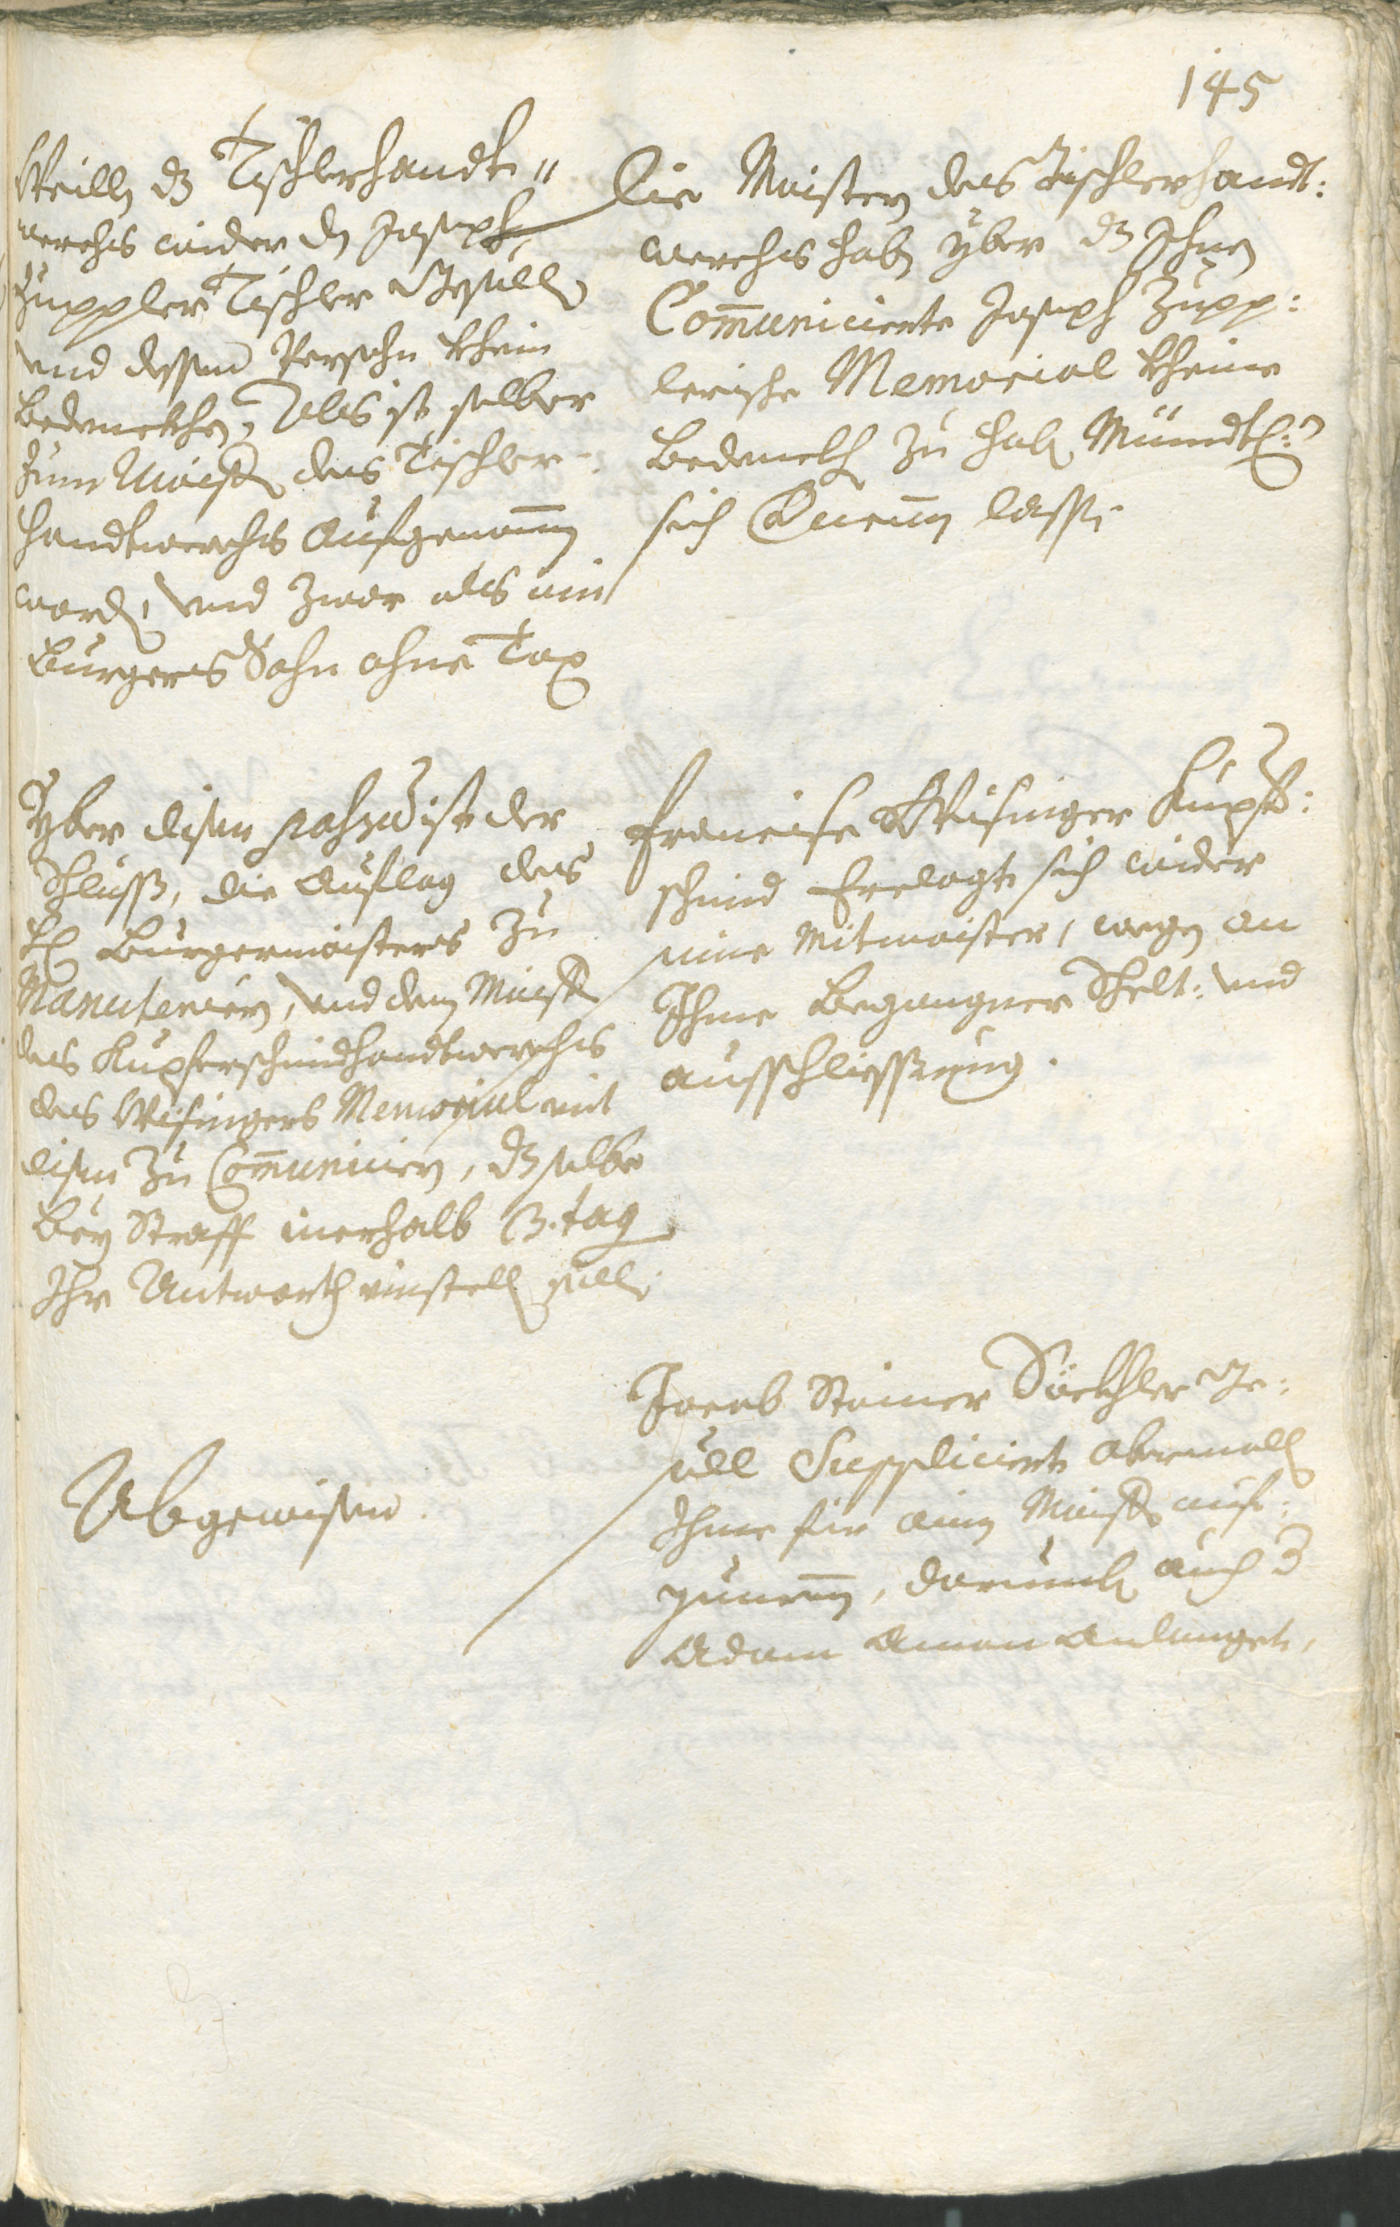 145
Weillen dz Tischlerhandt-
werchs wider den Joseph
Zuppler Tischler Gesellen
und dessen Persohn khein
bedenckhen, Alss ist selber
zum Maister des Tischler-
handtwerchs aufgenommen
worden, und zwar als ein
Burgers Sohn ohne Tax
Die Maister des Tischlerhandt:
werchs haben yber dz Ihnen
Communicierte Joseph Zupp:
lerische Memorial kheine
bedenckhen zu haben Mündtl:
sich vernemmen lassen.
Yber disen ist der
Schluss, die Auflag des
H Burgermaisters zu
Manutenieren, und dem Maister
des Kupferschmidhandtwerchs
des Weisingers Memorial mit
disem zu Communicieren, dz selbe
bey Straff inerhalb 3. tag
Ihr Antworth einstellen sollen.
Francisc Weisinger Kupfer:
schmid beclagt sich wider
seine Mitmaister, wegen an
Ihme begangner Schelt: und
ausschliessung.
Abgewisen.
Jacob Stainer Söckhler Ge:
sell Suppliciert abermallen
Ihme für ainen Maister auf:
zunemmen, darumben auch
Adam Aman anlanget,